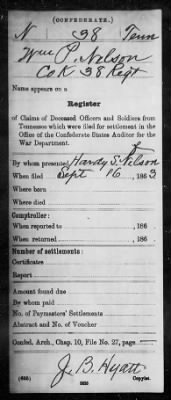 (CONFEDERATE.)
N 38 Tenn
Wm P. Nelson
Co K 38 Regt
Name appears on a
Register
of Claims of Deceased Officers and Soldiers from
Tennessee which were filed for settlement in the
Office of the Confederate States Auditor for the
War Department.
By whom presented Hardy S. Nelson
When filed Sept 16, 1863
Where born
Where died
Comptroller:
When reported to , 186
When returned , 186
Number of settlements:
Certificates
Report
Amount found due
By whom paid
No. of Paymasters' Settlements
Abstract and No. of Voucher
Confed. Arch., Chap. 10, File No. 27, page
J. B. Hyatt
(635) Copyist.